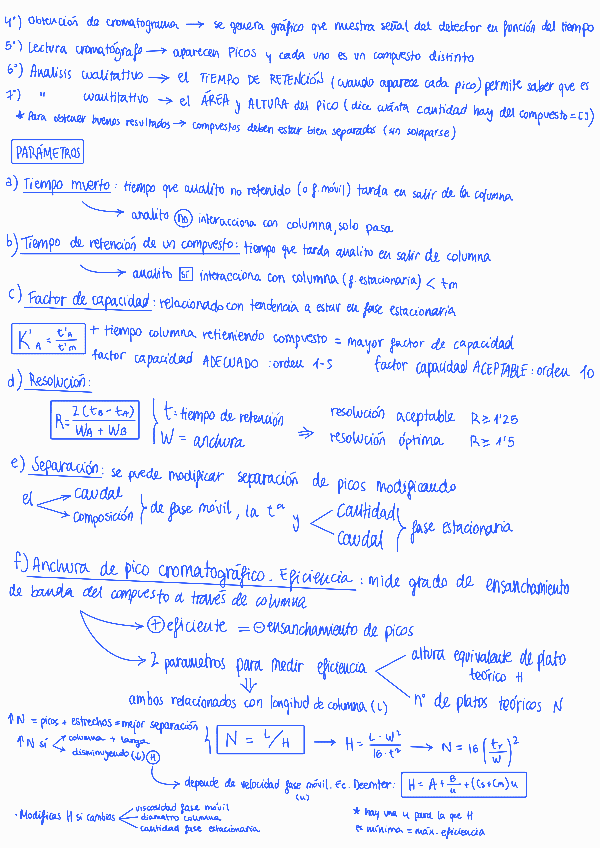 4º) Obtención de cromatograma → se genera gráfico que muestra señal del detector en función del tiempo
5º) Lectura cromatógrafo → aparecen PICOS y cada uno es un compuesto distinto
6º) Analisis cualitativo → el TIEMPO DE RETENCIÓN (cuando aparece cada pico) permite saber que es
7º) " cuantitativo → el ÁREA y ALTURA del PICO (dice cuánta cantidad hay del compuesto = [])
* Para obtener buenos resultados → compuestos deben estar bien separados (sin solaparse)
PARÁMETROS
a) Tiempo muerto: tiempo que analito no retenido (o f. móvil) tarda en salir de la columna
→ analito no interacciona con columna, solo pasa
b) Tiempo de retención de un compuesto: tiempo que tarda analito en salir de columna
→ analito sí interacciona con columna (f. estacionaria) < tm
c) Factor de capacidad: relacionado con tendencia a estar en fase estacionaria
K'A = t'A / t'm + tiempo columna reteniendo compuesto = mayor factor de capacidad
factor capacidad ADECUADO: orden 1-5 factor capacidad ACEPTABLE: orden 10
d) Resolución:
R = 2(tB - tA) / WA + WB { t = tiempo de retención W = anchura ⇒ resolución aceptable R ≥ 1'25
resolución óptima R ≥ 1'5
e) Separación: se puede modificar separación de picos modificando
el → caudal → composición } de fase móvil, la tª y cantidad caudal } fase estacionaria
f) Anchura de pico cromatográfico. Eficiencia: mide grado de ensanchamiento
de banda del compuesto a través de columna
→ + eficiente = - ensanchamiento de picos
→ 2 parametros para medir eficiencia altura equivalente de plato teórico H
nº de platos teóricos N
ambos relacionados con longitud de columna (L)
↑N = picos + estrechos = mejor separación
↑N si columna + larga
disminuyendo (↓) H
N = L/H → H = L · W² / 16 · t² → N = 16 (tr / W)²
→ depende de velocidad fase móvil. Ec. Deemter: H = A + B/u + (Cs + Cm) u
(u)
· Modificas H si cambias viscosidad fase móvil
diametro columna
cantidad fase estacionaria
* hay una u para la que H
es mínima = máx. eficiencia